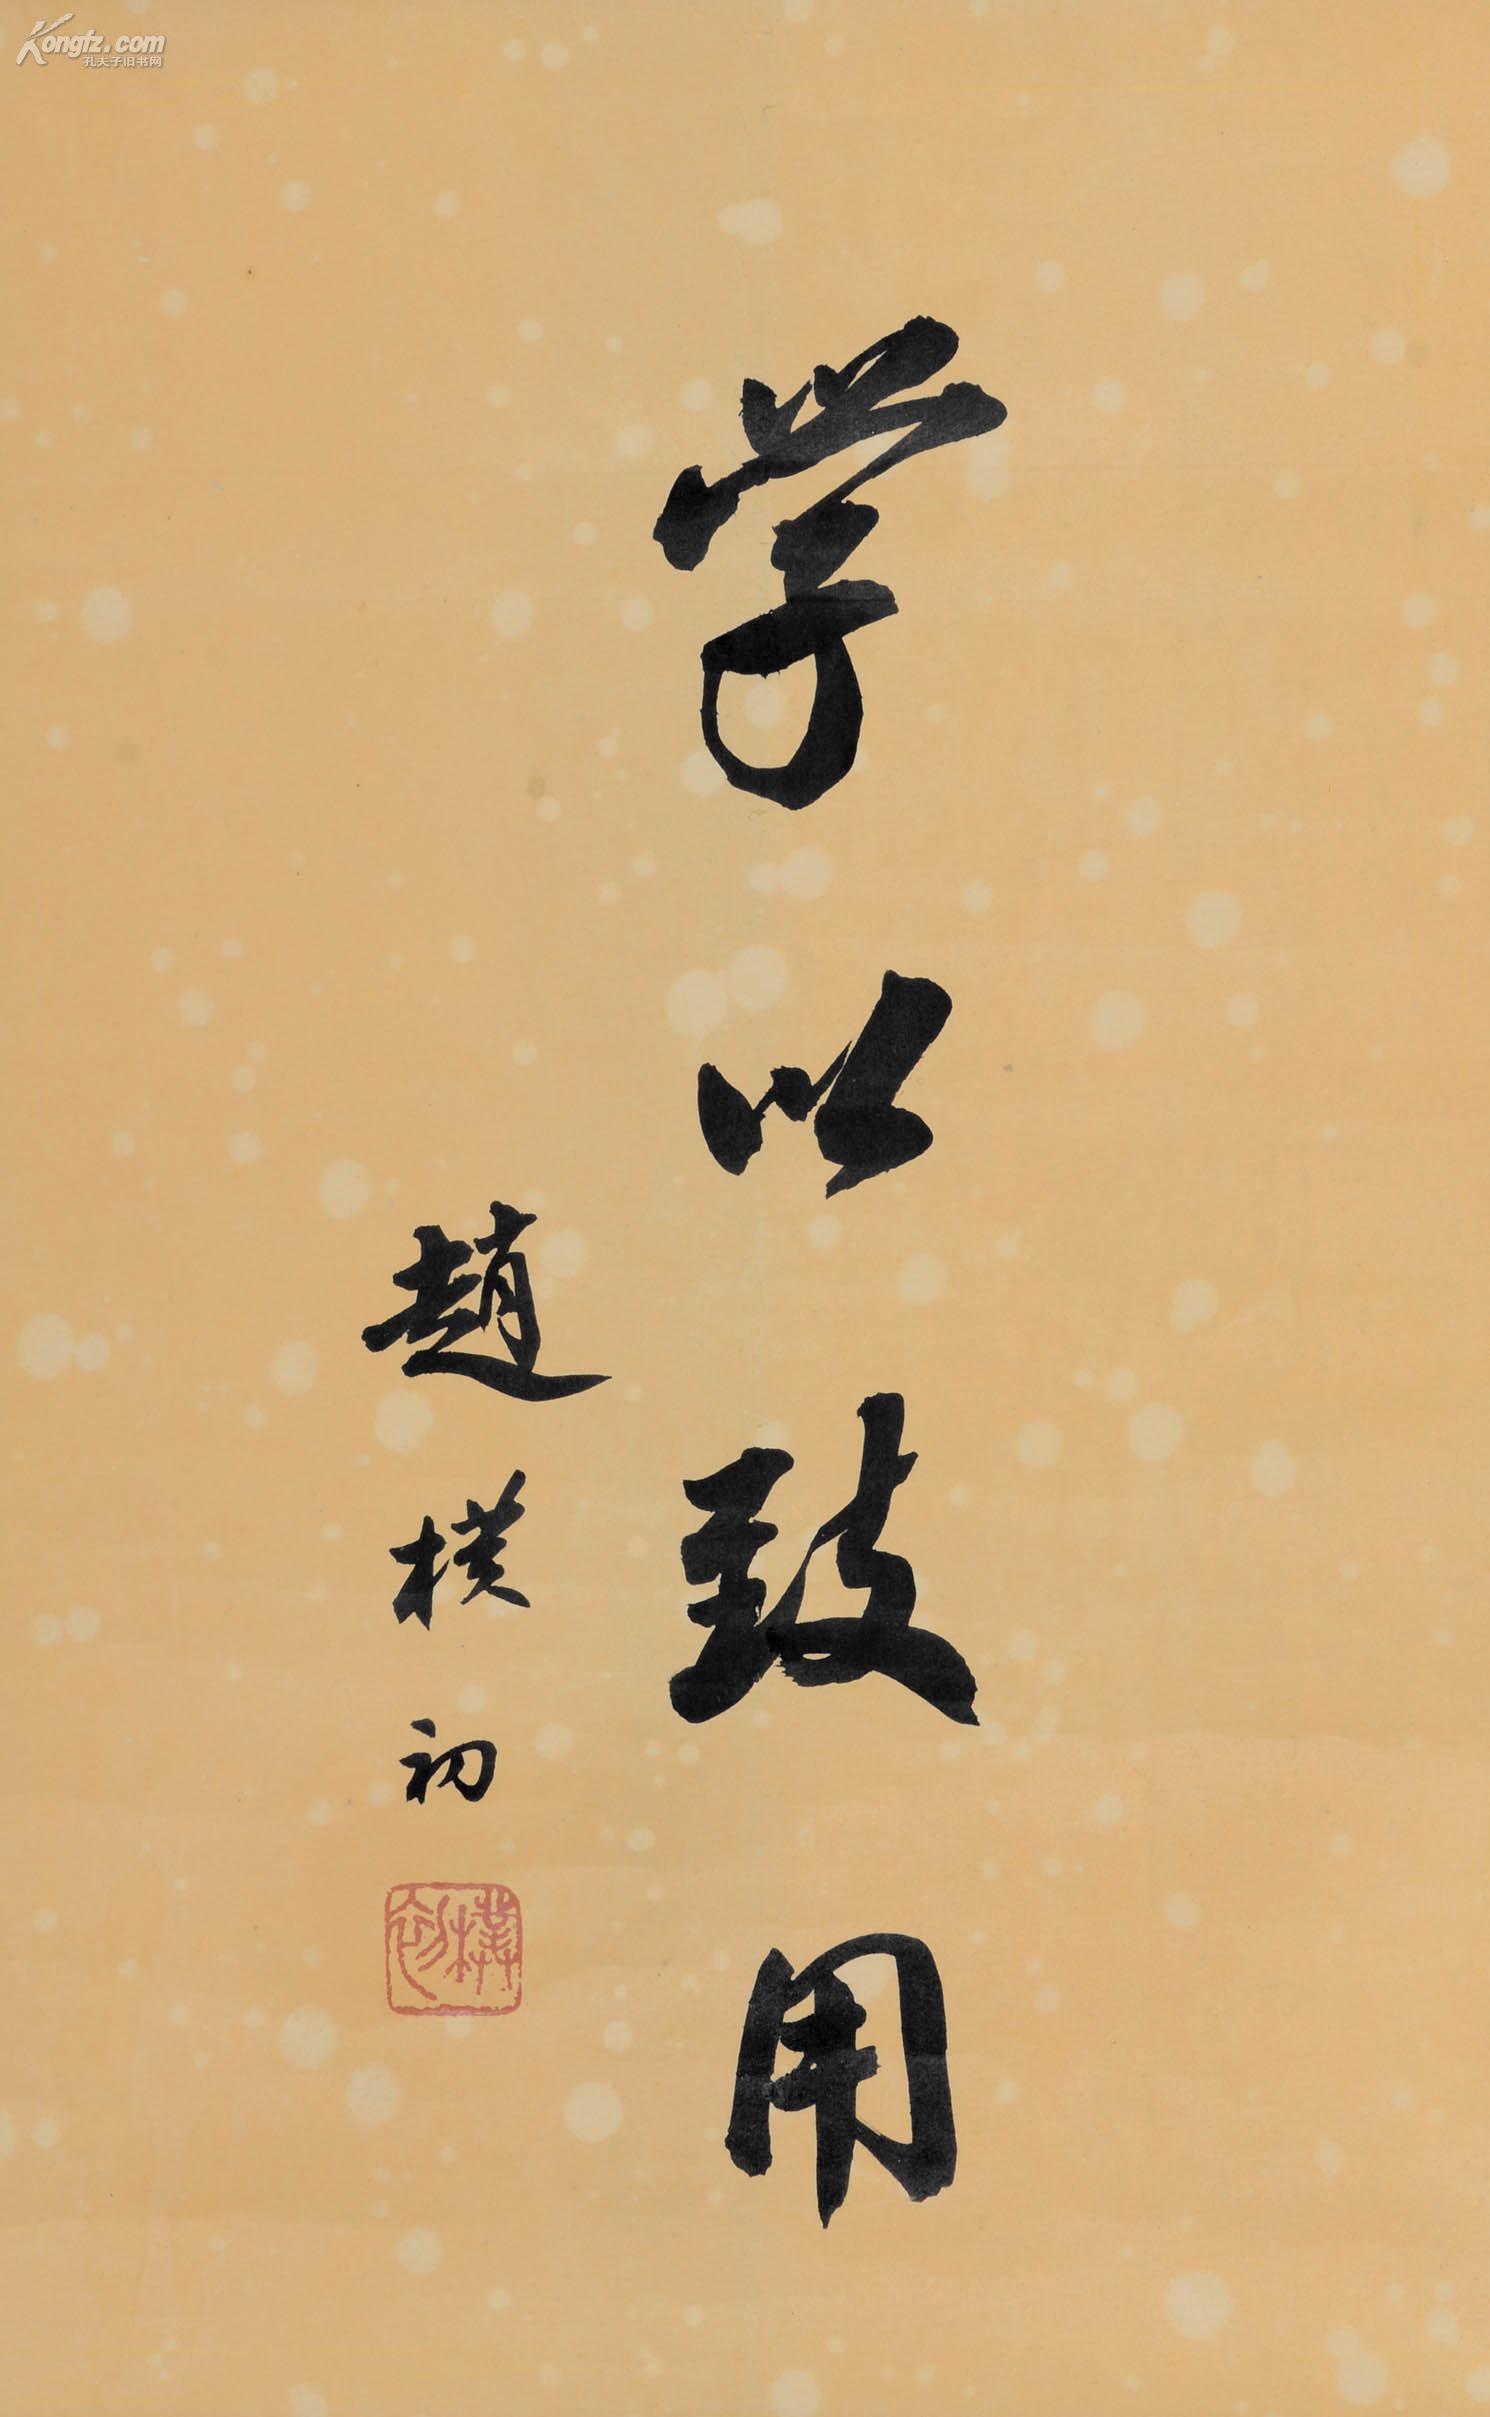 Kongfz.com
孔夫子旧书网
学以致用
趙樸初
樸初